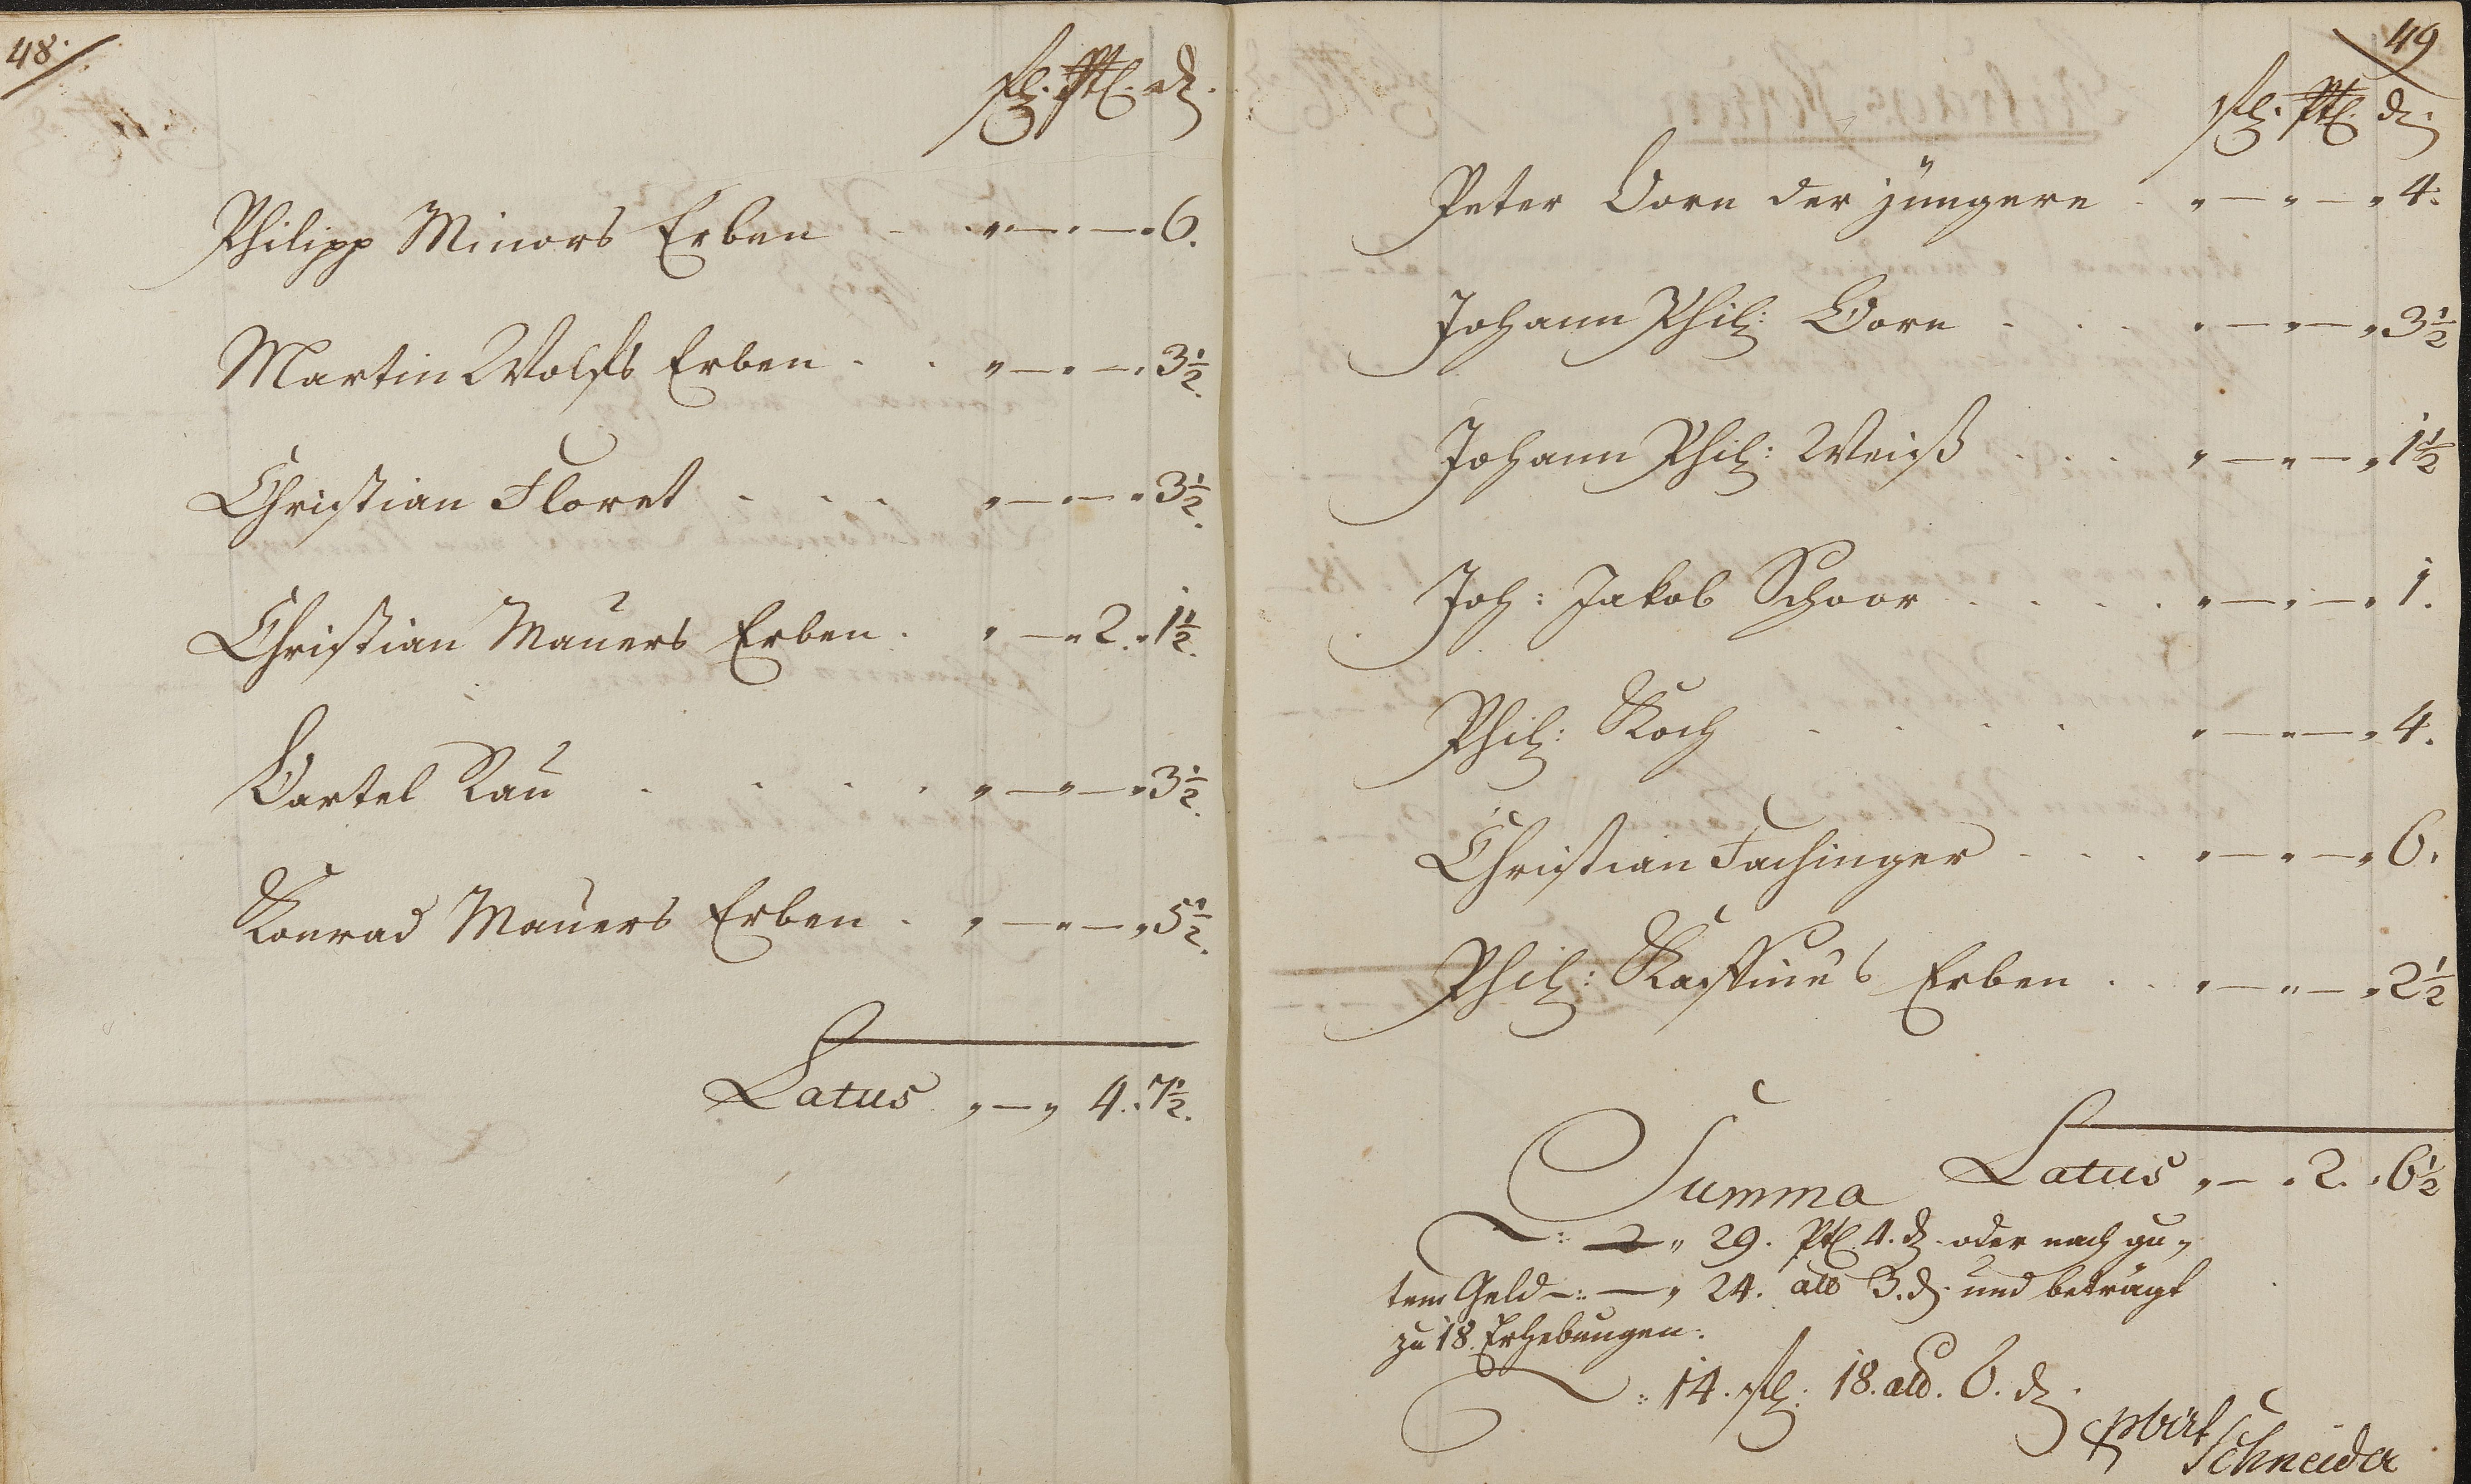 48.
fl. Ptl. ₰.
Philipp Minors Erben - . „ — „ — „ 6.
Martin Wolffs Erben . . „ — „ — „ 3½.
Christian Floret . . . „ — „ — „ 3½.
Christian Maüers Erben . „ — „ 2. „ 1½.
Bartel Raü . . . . „ — „ — „ 3½.
Konrad Maüers Erben . „ — „ — „ 5½.
Latus „ — „ 4. „ 7½.
49
fl. Ptl. ₰.
Peter Dorn der jüngere . „ — „ — „ 4.
Johann Phil: Dorn . . . „ — „ — „ 3½
Johann Phil: Weiß . . . „ — „ — „ 1½
Joh: Jakob Schoor . . . . „ — „ — „ 1.
Phil: Koch . . . . „ — „ — „ 4.
Christian Fachinger . . . „ — „ — „ 6.
Phil: Erben . . „ — „ — „ 2½
Latus „ — „ 2. „ 6½
Summa
29. Ptl. 4. ₰. oder nach gu„
tem Geld —:— „ 24. alb 3. ₰. und beträgt
zu 18. Erhebungen.
14. fl. 18. alb. 6. ₰.
Schneider